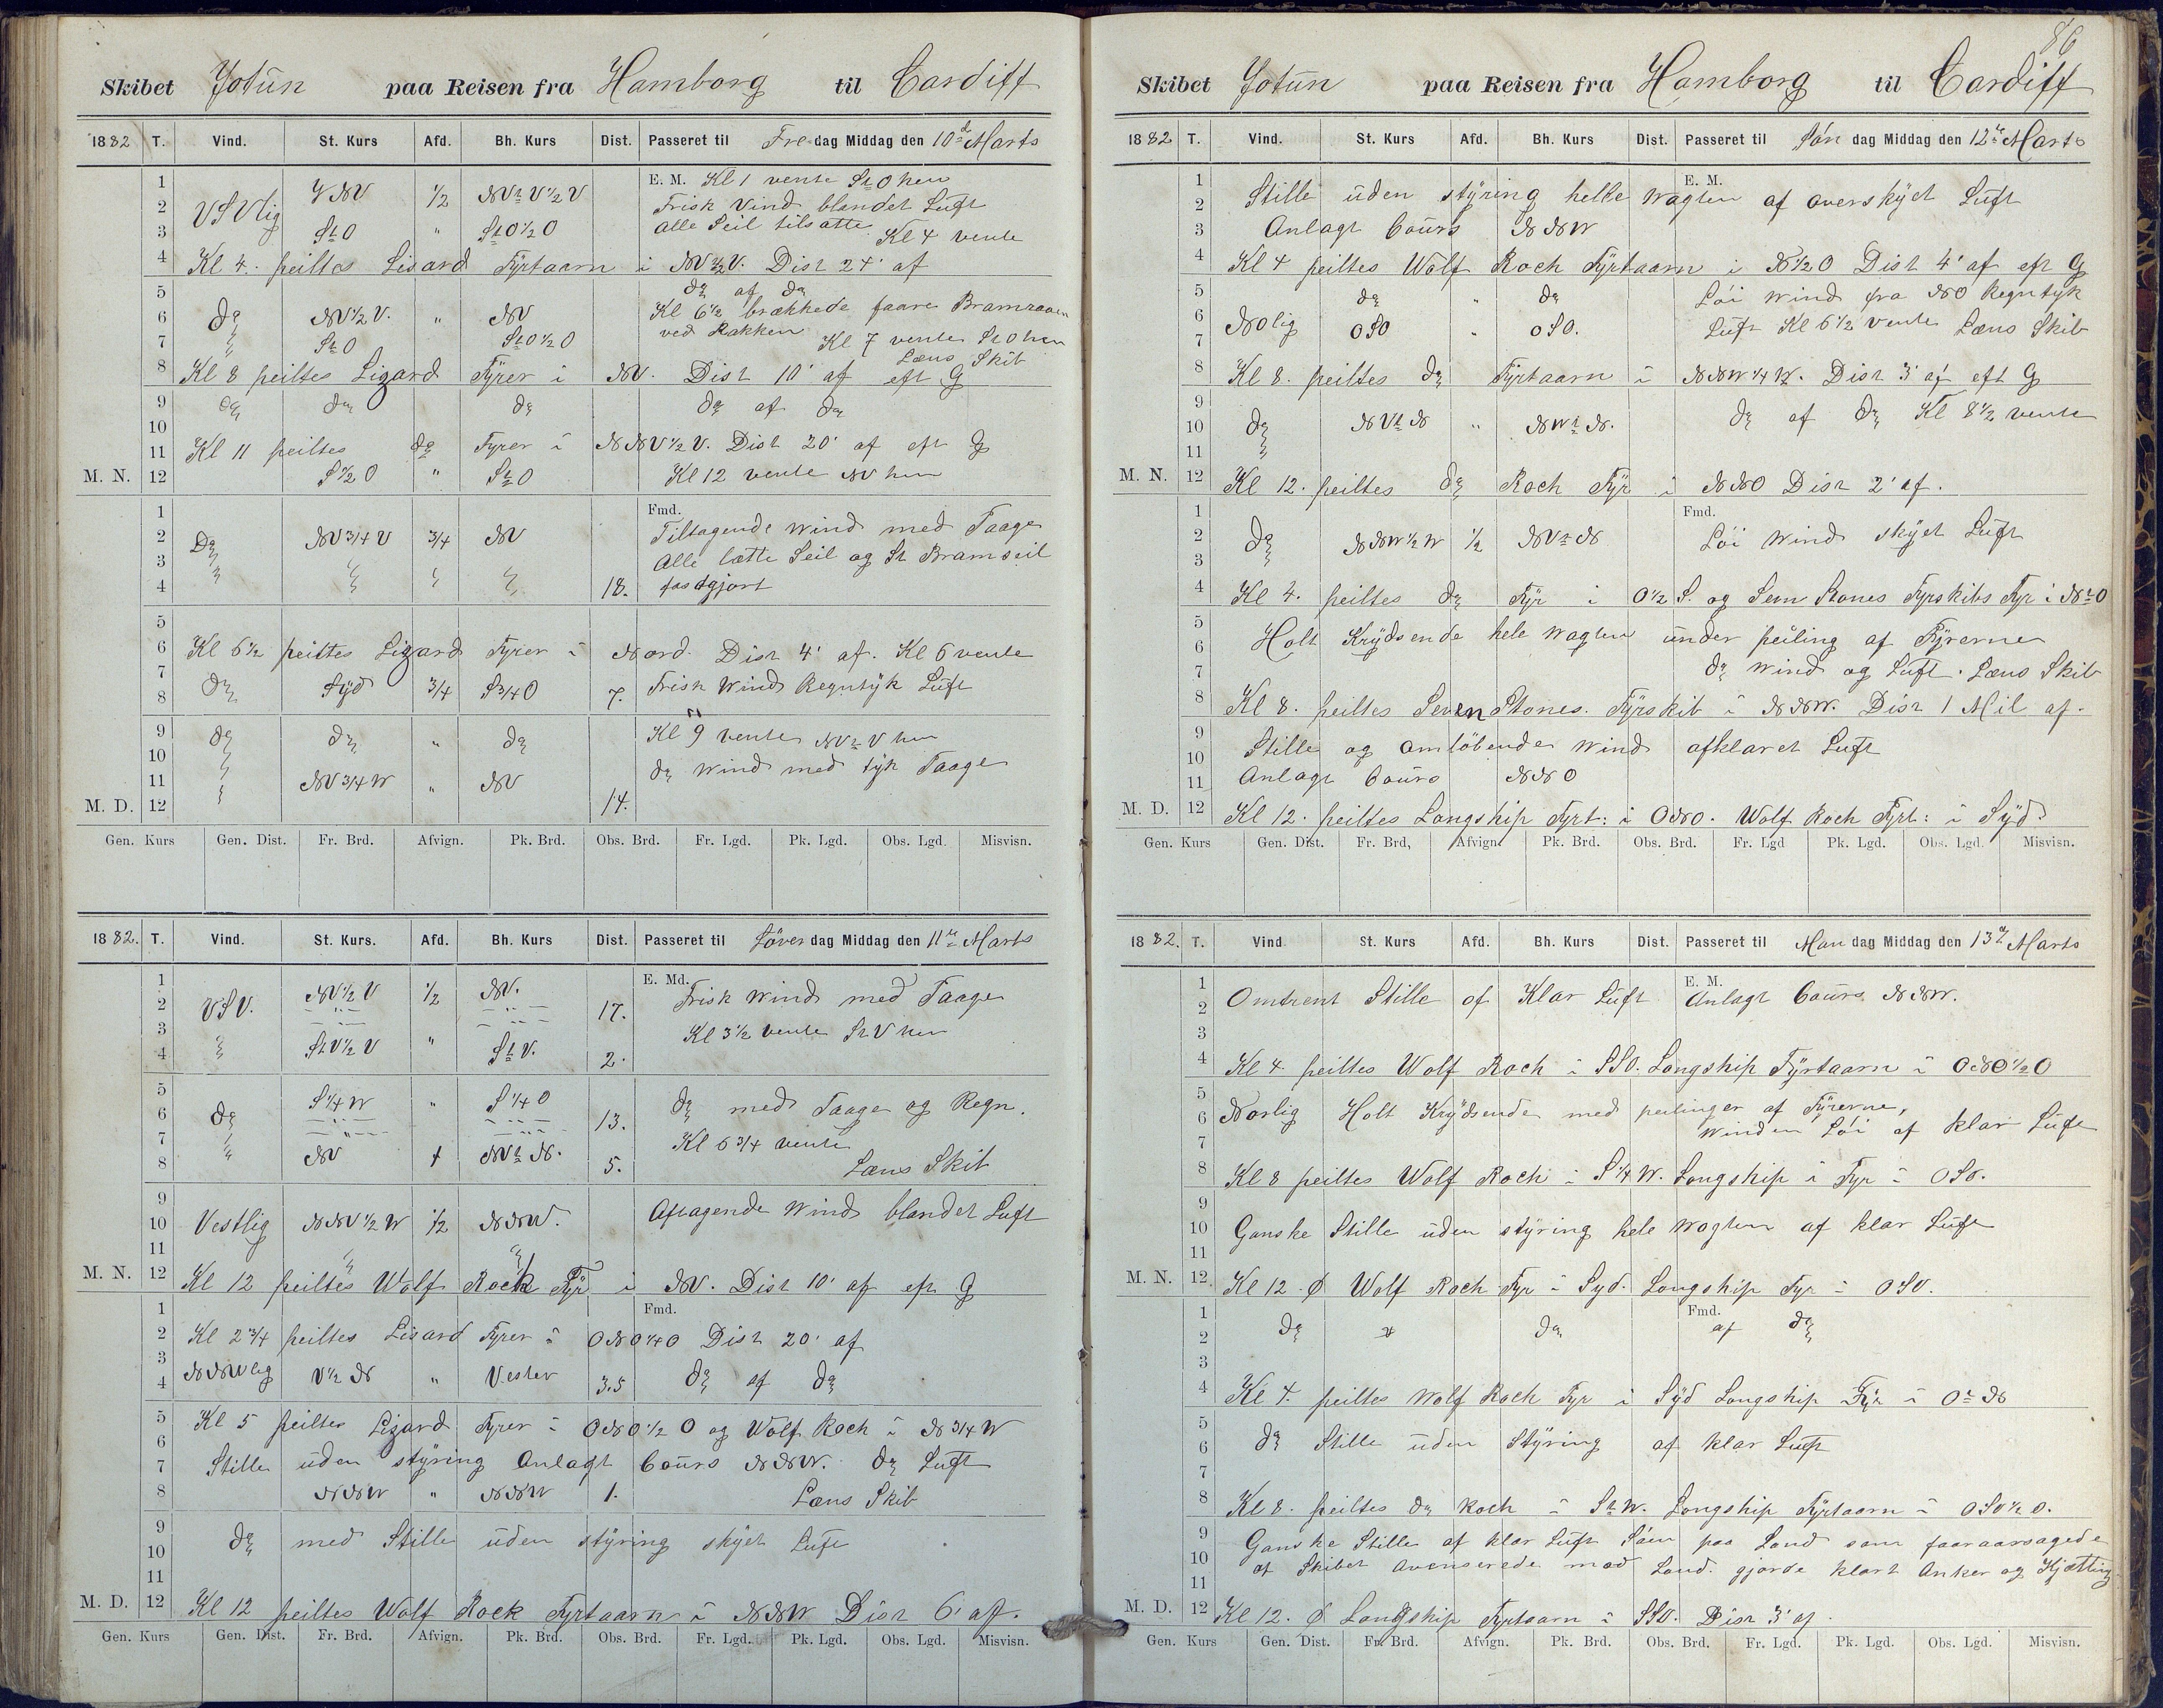 Skibet Jotun paa Reisen fra Hamborg til Cardiff
1882 T. Vind. St. Kurs Afd. Bh. Kurs Dist. Passeret til Fredag Middag den 10de Marts
1 E. M. Kl 1 vente StO hen
2 VSVlig VNV 1/2 NVtV1/2V Frisk Vind blandet Luft
3 StO " StO1/2O alle Seil tilsatte Kl 4 vente
4 Kl 4. peiltes Lisard Fyrtaarn i NV1/2V. Dist 24' af
5 do af do
6 do NV1/2V. " NV Kl 6 1/2 brækkede faare Bramraaen
7 " StO StO1/2O ved Rakken Kl 7 vente StO hen
Læns Skib
8 Kl 8 peiltes Lizard Fyrer i NV. Dist 10' af eft G
9 do do do do af do
10
11 Kl 11 peiltes do Fyrer i NNV1/2V. Dist 20' af eft G
M. N. 12 S1/2O " StO Kl 12 vente NV hen
1 Fmd.
2 Do NV3/4V 3/4 NV Tiltagende Wind med Taage
3 Alle lætte Seil og St Bramseil
4 18. fastgjort
5
6 Kl 6 1/2 peiltes Lizard Fyrer i Nord. Dist 4' af. Kl 6 vente
7
8 do Syd 3/4 S3/4O 7. Frisk Wind Regntyk Luft
9 do do " do Kl 9 vente NVtV hen
10 do Wind med tyk Taage
11 " NV3/4W " NV
M. D. 12 14.
Gen. Kurs Gen. Dist. Fr. Brd. Afvign. Pk. Brd. Obs. Brd. Fr. Lgd. Pk. Lgd. Obs. Lgd. Misvisn.
1882. T. Vind. St. Kurs. Afd. Bh. Kurs Dist. Passeret til Löverdag Middag den 11te Marts
1 E. Md.
2 VSV. NV1/2V 1/2 NV. 17. Frisk Wind med Taage
3 Kl 3 1/2 vente StV hen
4 " StV1/2V " StV. 2.
5
6 do S1/4W " S1/4O 13. do med Taage og Regn.
7 Kl 6 3/4 vente
8 " NV 1 NVtN. 5. Læns Skib
9
10 Vestlig NNV1/2W 1/2 NNW. Aftagende Wind blandet Luft
11
M. N. 12 Kl 12 peiltes Wolf Rock Fyr i NV. Dist 10' af eft G
1 Fmd.
2 Kl 2 3/4 peiltes Lisard Fyrer i ONO1/4O Dist 20' af
3
4 NNWlig V1/2N " Vester 3.5 do af do
5 Kl 5 peiltes Lizard Fyrer i ONO1/2O og Wolf Rock i N3/4W
6
7 Stille uden styring Anlagt Cours NNW. do Luft
8 NNW " NNW 1. Læns Skib
9
10 do med Stille uden styring skyet Luft
11
M. D. 12 Kl 12 peiltes Wolf Rock Fyrtaarn i NNW Dist 6' af.
Gen. Kurs Gen. Dist. Fr. Brd. Afvign. Pk. Brd. Obs. Brd. Fr. Lgd. Pk. Lgd. Obs. Lgd. Misvisn.
86
Skibet Jotun paa Reisen fra Hamborg til Cardiff
1882 T. Vind. St. Kurs Afd. Bh. Kurs Dist. Passeret til Søn dag Middag den 12te Marts
1 E. M.
2 Stille uden styring helle Wagten af overskyet Luft
3 Anlagt Cours NNW
4 Kl 4 peiltes Wolf Roch Fyrtaarn i N1/2O Dist 4' af eft G
5 do " do Løi Wind fra NO Regntyk
6 NOlig
7 OSO " OSO. Luft Kl 6 1/2 vente Læns Skib
8 Kl 8. peiltes do Fyrtaarn i NNW1/4W. Dist 3' af eft G
9
10 do NVtN " NWtN. do af do Kl 8 1/2 vente
11
M. N. 12 Kl 12. peiltes do Roch Fyr i NNO Dist 2' af.
1 Fmd.
2 do NNW1/2W 1/2 NVtN Løi Wind skyet Luft
3
4 Kl 4. peiltes do Fyr i O1/2S. og Sevn Stones Fyrskibs Fyr i NtO
5
6 Holt Krydsende hele Wagten under peiling af Fyrerne
7 do Wind og Luft. Læns Skib
8 Kl 8. peiltes Seven Stones. Fyrskib i NNW. Dist 1 Mil af.
9
10 Stille og omløbende Wind afklaret Luft
11 Anlagt Cours NNO
M. D. 12 Kl 12. peiltes Longship Fyrt: i ONO. Wolf Roch Fyrt: i Syd.
Gen. Kurs Gen. Dist. Fr. Brd, Afvign. Pk. Brd. Obs. Brd. Fr. Lgd Pk. Lgd. Obs. Lgd. Misvisn.
1882. T. Vind St. Kurs Afd. Bh. Kurs Dist. Passeret til Man dag Middag den 13de Marts
1 E. M.
2 Omtrent Stille af Klar Luft Anlagt Cours NNW.
3
4 Kl 4. peiltes Wolf Roch i SSO. Longship Fyrtaarn i ONO1/2O
5
6 Norlig Holt Krydsende med peilinger af Fyrerne,
7 Winden Løi af klar Luft
8 Kl 8 peiltes Wolf Roch i S1/4W. Longship i Fyr i OSO.
9
10 Ganske Stille uden styring hele Wagten af klar Luft
11
M. N. 12. Kl 12. Ø Wolf Roch Fyr i Syd. Longship Fyr i OSO.
1 Fmd.
2 do do af do
3
4 Kl 4. peiltes Wolf Roch Fyr i Syd Longship Fyr i OtN
5
6 do Stille uden Styring af klar Luft
7
8 Kl 8. peiltes do Roch i StW. Longship Fyrtaarn i OSO1/2O.
9 Ganske Stille af klar Luft Søen paa Land som faaraarsagede
10 at Skibet avenserede mod Land. gjorde klart Anker og Kjætting
11
M. D. 12 Kl 12. Ø Longship Fyrtaarn i SSO. Dist 3' af.
Gen. Kurs Gen. Dist. Fr. Brd. Afvign. Pk. Brd. Obs. Brd. Fr. Lgd. Pk. Lgd. Obs. Lgd. Misvisn.